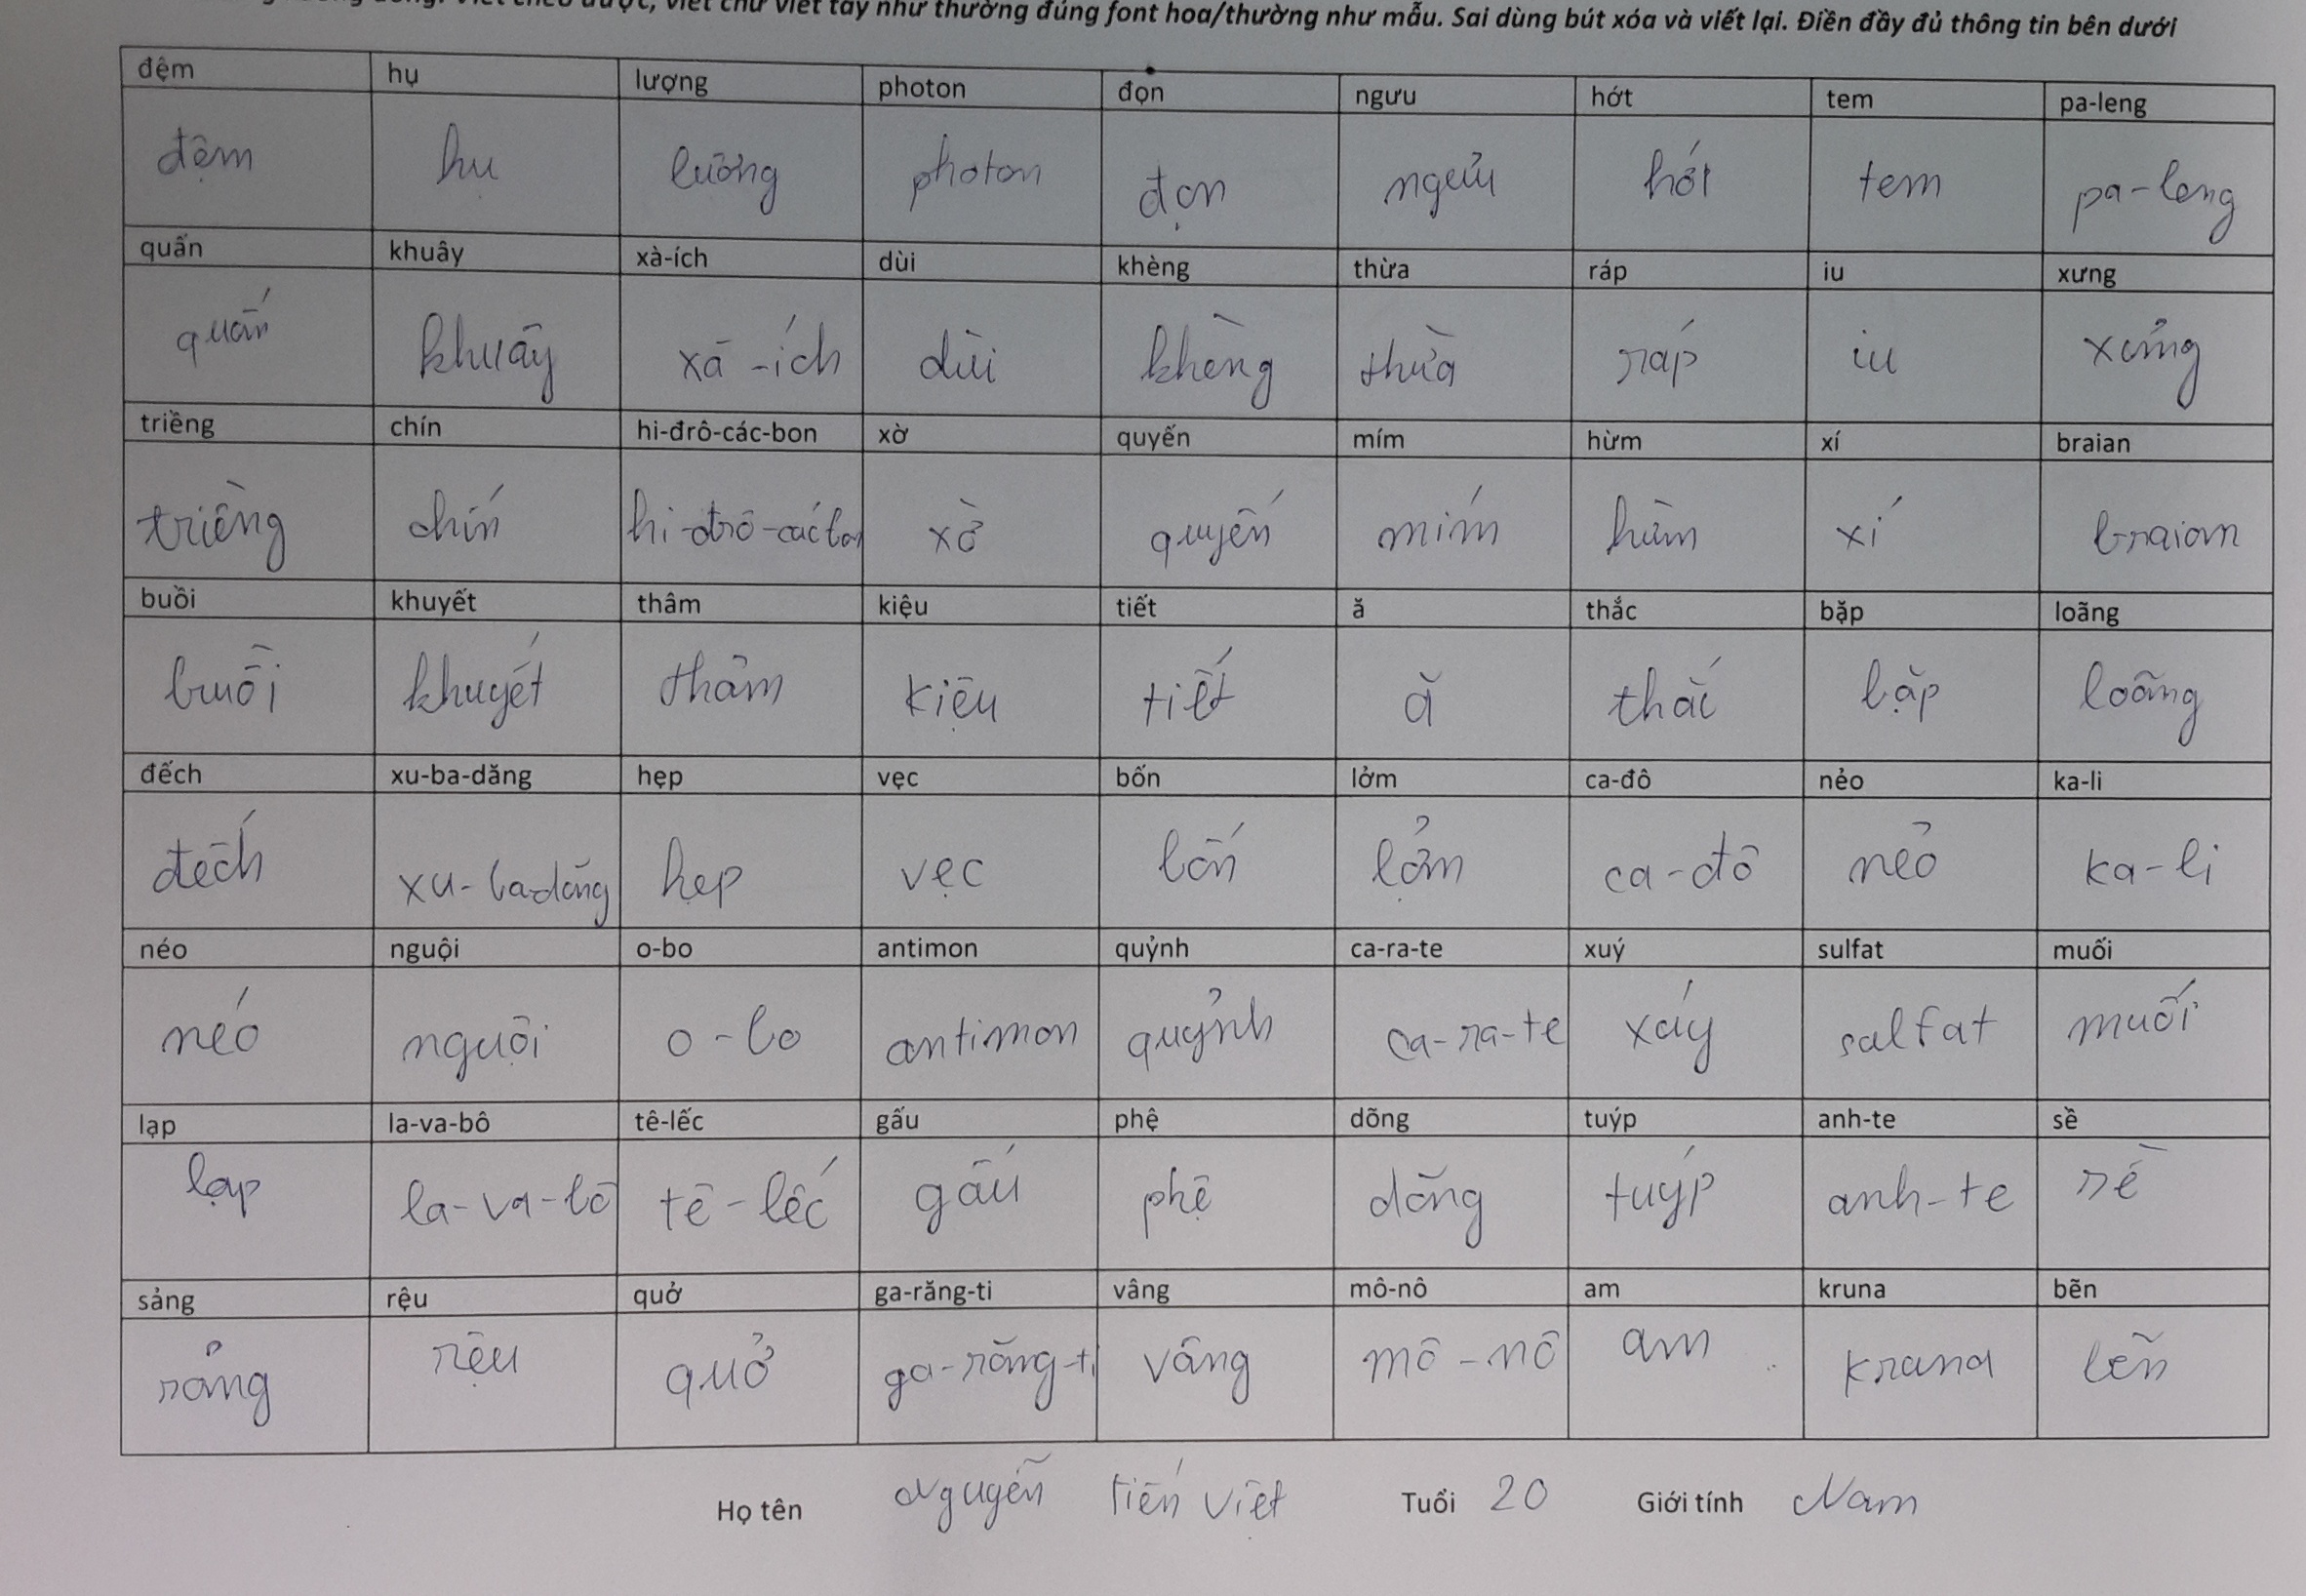 viết chữ viết tay như thường đúng font hoa/thường như mẫu. Sai dùng bút xóa và viết lại. Điền đầy đủ thông tin bên dưới
đệm hụ lượng photon đọn ngưu hớt tem pa-leng
đệm hụ lượng photon đọn ngưu hớt tem pa-leng
quấn khuây xà-ích dùi khèng thừa ráp iu xưng
quấn khuây xà-ích dùi khèng thừa ráp iu xưng
triềng chín hi-đrô-các-bon xờ quyến mím hừm xí braian
triềng chín hi-đrô-các-bon xờ quyến mím hừm xí braian
buồi khuyết thâm kiệu tiết ă thắc bặp loãng
buồi khuyết thâm kiệu tiết ă thắc bặp loãng
đếch xu-ba-dăng hẹp vẹc bốn lởm ca-đô nẻo ka-li
đếch xu-ba-dăng hẹp vẹc bốn lởm ca-đô nẻo ka-li
néo nguội o-bo antimon quỷnh ca-ra-te xuý sulfat muối
néo nguội o-bo antimon quỷnh ca-ra-te xuý sulfat muối
lạp la-va-bô tê-lếc gấu phệ dõng tuýp anh-te sề
lạp la-va-bô tê-lếc gấu phệ dõng tuýp anh-te sề
sảng rệu quở ga-răng-ti vâng mô-nô am kruna bẽn
sảng rệu quở ga-răng-ti vâng mô-nô am kruna bẽn
Họ tên Nguyễn Tiến Việt Tuổi 20 Giới tính Nam